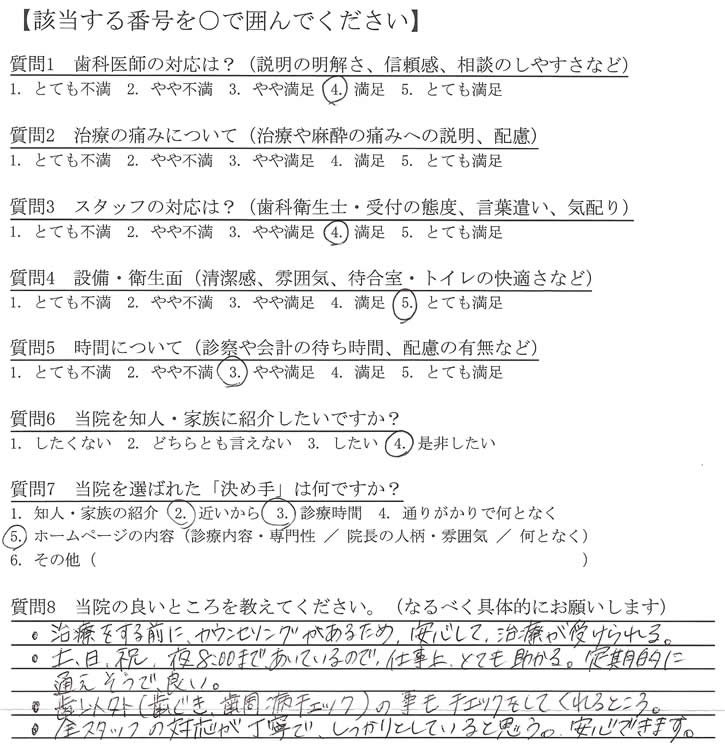 【該当する番号を○で囲んでください】
質問1 歯科医師の対応は？（説明の明解さ、信頼感、相談のしやすさなど）
1. とても不満 2. やや不満 3. やや満足 4. 満足 5. とても満足
質問2 治療の痛みについて（治療や麻酔の痛みへの説明、配慮）
1. とても不満 2. やや不満 3. やや満足 4. 満足 5. とても満足
質問3 スタッフの対応は？（歯科衛生士・受付の態度、言葉遣い、気配り）
1. とても不満 2. やや不満 3. やや満足 4. 満足 5. とても満足
質問4 設備・衛生面（清潔感、雰囲気、待合室・トイレの快適さなど）
1. とても不満 2. やや不満 3. やや満足 4. 満足 5. とても満足
質問5 時間について（診察や会計の待ち時間、配慮の有無など）
1. とても不満 2. やや不満 3. やや満足 4. 満足 5. とても満足
質問6 当院を知人・家族に紹介したいですか？
1. したくない 2. どちらとも言えない 3. したい 4. 是非したい
質問7 当院を選ばれた「決め手」は何ですか？
1. 知人・家族の紹介 2. 近いから 3. 診療時間 4. 通りがかりで何となく
5. ホームページの内容（診療内容・専門性 ／ 院長の人柄・雰囲気 ／ 何となく）
6. その他（ ）
質問8 当院の良いところを教えてください。（なるべく具体的にお願いします）
• 治療をする前に、カウンセリングがあるため、安心して、治療が受けられる。
• 土、日、祝、夜8:00まであいているので、仕事上、とても助かる。定期的に
通えそうで良い。
• 歯以外（歯ぐき、歯周病チェック）の事もチェックをしてくれるところ。
• 全スタッフの対応が丁寧で、しっかりとしていると思う。安心できます。